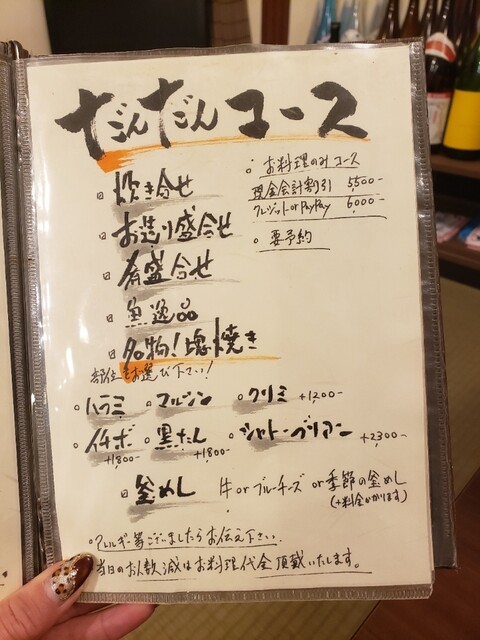 だんだんコース
炊き合せ
お造り盛合せ
肴盛合せ
魚逸品
名物!塊焼き
部位をお選び下さい!
お料理のみコース
現金会計割引 5500-
クレジットorPayPay 6000-
要予約
ハラミ マルシン クリミ +1200-
イチボ +1,800- 黒たん +1800- シャトーブリアン +2300-
釜めし 牛orブルーチーズ or季節の釜めし
(+料金かかります)
アレルギー等ございましたらお伝え下さい.
当日のお人数減はお料理代全頂戴いたします。